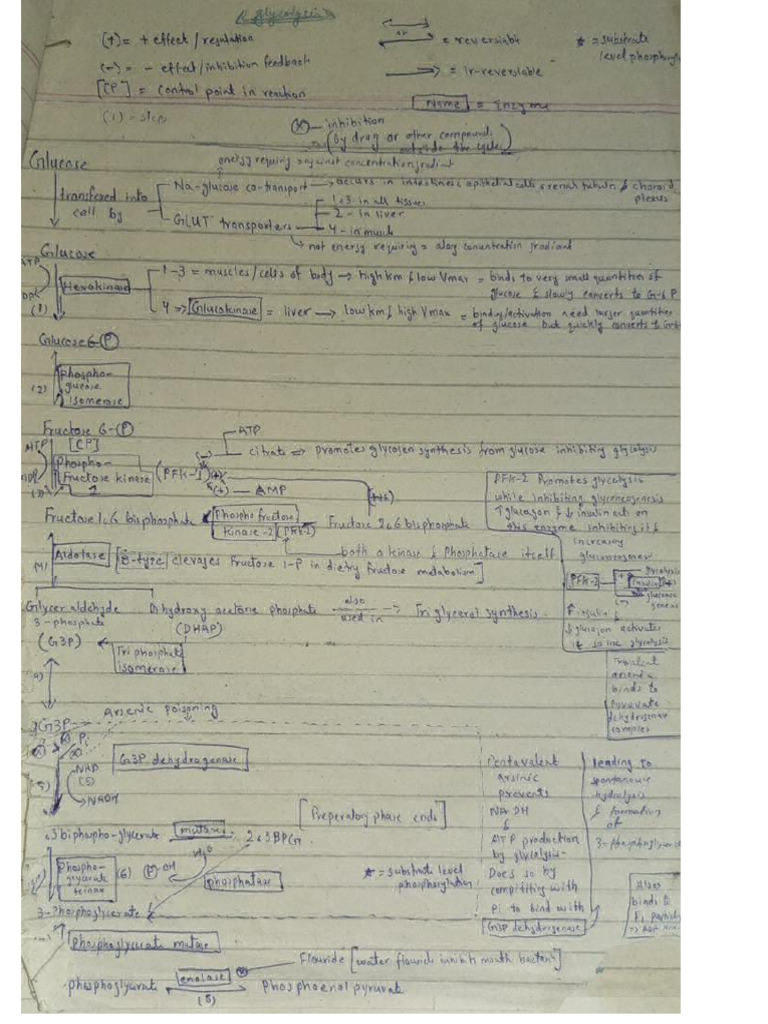 Glycolysis
(+) = + effect / regulation
= reversiable
* = substrate level phosphoryl
(-) = - effect / inhibition feedback
= ir-reversiable
[CP] = control point in reaction
Name = Enzyme
(1) - step
(X) - inhibition
(by drug or other compounds outside the cycle)
Glucose
energy requiring against concentration gradient
transfered into cell by
Na-glucose co-transport → occurs in intestines epithelial cells & renal tubules & choroid plexus
GLUT transporters
1 & 3 in all tissues
2 - in liver
4 - in muscle
not energy requiring = along concentration gradient
Glucose
ATP
Hexokinase
(1)
1-3 = muscles / cells of body → high km & low Vmax = binds to very small quantities of glucose & slowly converts to G-6 P
4 => Glucokinase = liver → low km & high Vmax = binding/activation need larger quantities of glucose but quickly converts to
Glucose 6-(P)
(2)
Phospho-glucose isomerase
Fructose 6-(P)
[CP]
ATP
Phospho-fructose kinase 1
(PFK-1)
(-)
ATP
citrate => promotes glycogen synthesis from glucose inhibiting glycolysis
(+) - AMP
Fructose 1&6 bisphosphate
Phospho fructose kinase-2 (PFK-2)
Fructose 2&6 bisphosphate
both a kinase & Phosphatase itself
PFK-2 Promotes glycolysis
while inhibiting gluconeogenesis
↑ glucagon & ↓ insulin act on
this enzyme inhibiting it &
increasing
(4)
Aldolase
[B-type] clevages fructose 1-P in dietry fructose metabolism]
PFK-2
insulin
Glycer aldehyde 3-phosphate
(G3P)
Dihydroxy acetone phosphate
(DHAP)
also used in
Triglyceral synthesis
↑ insulin &
↓ glucagon activates
Tri phosphate isomerase
Trivalent
arsenic
binds to
Pyruvate
dehydrogenase
complex
Arsenic poisoning
G3P
Pi
(X)
NAD
(5)
NADH
G3P dehydrogenase
Pentavalent
arsinic
prevents
NADH
&
ATP production
by glycolysis-
Does so by
compititing with
Pi to bind with
G3P dehydrogenase
leading to
spontanous
hydrolysis
& formation
of
3-phosphoglycerate
[Preperatory phase ends]
1,3 biphospho-glycerate
mutase
2&3 BPG
Phospho-glycerate kinase
(6)
(P) OH
H2O
phosphatase
* = substrate level phosphorylation
Also
binds to
3-Phosphoglycerate
Phosphoglycerate mutase
Flouride [water flouride inhibits mouth bacteria]
phosphoglycerate
enolase
(X)
(8)
Phosphoenol pyruvate